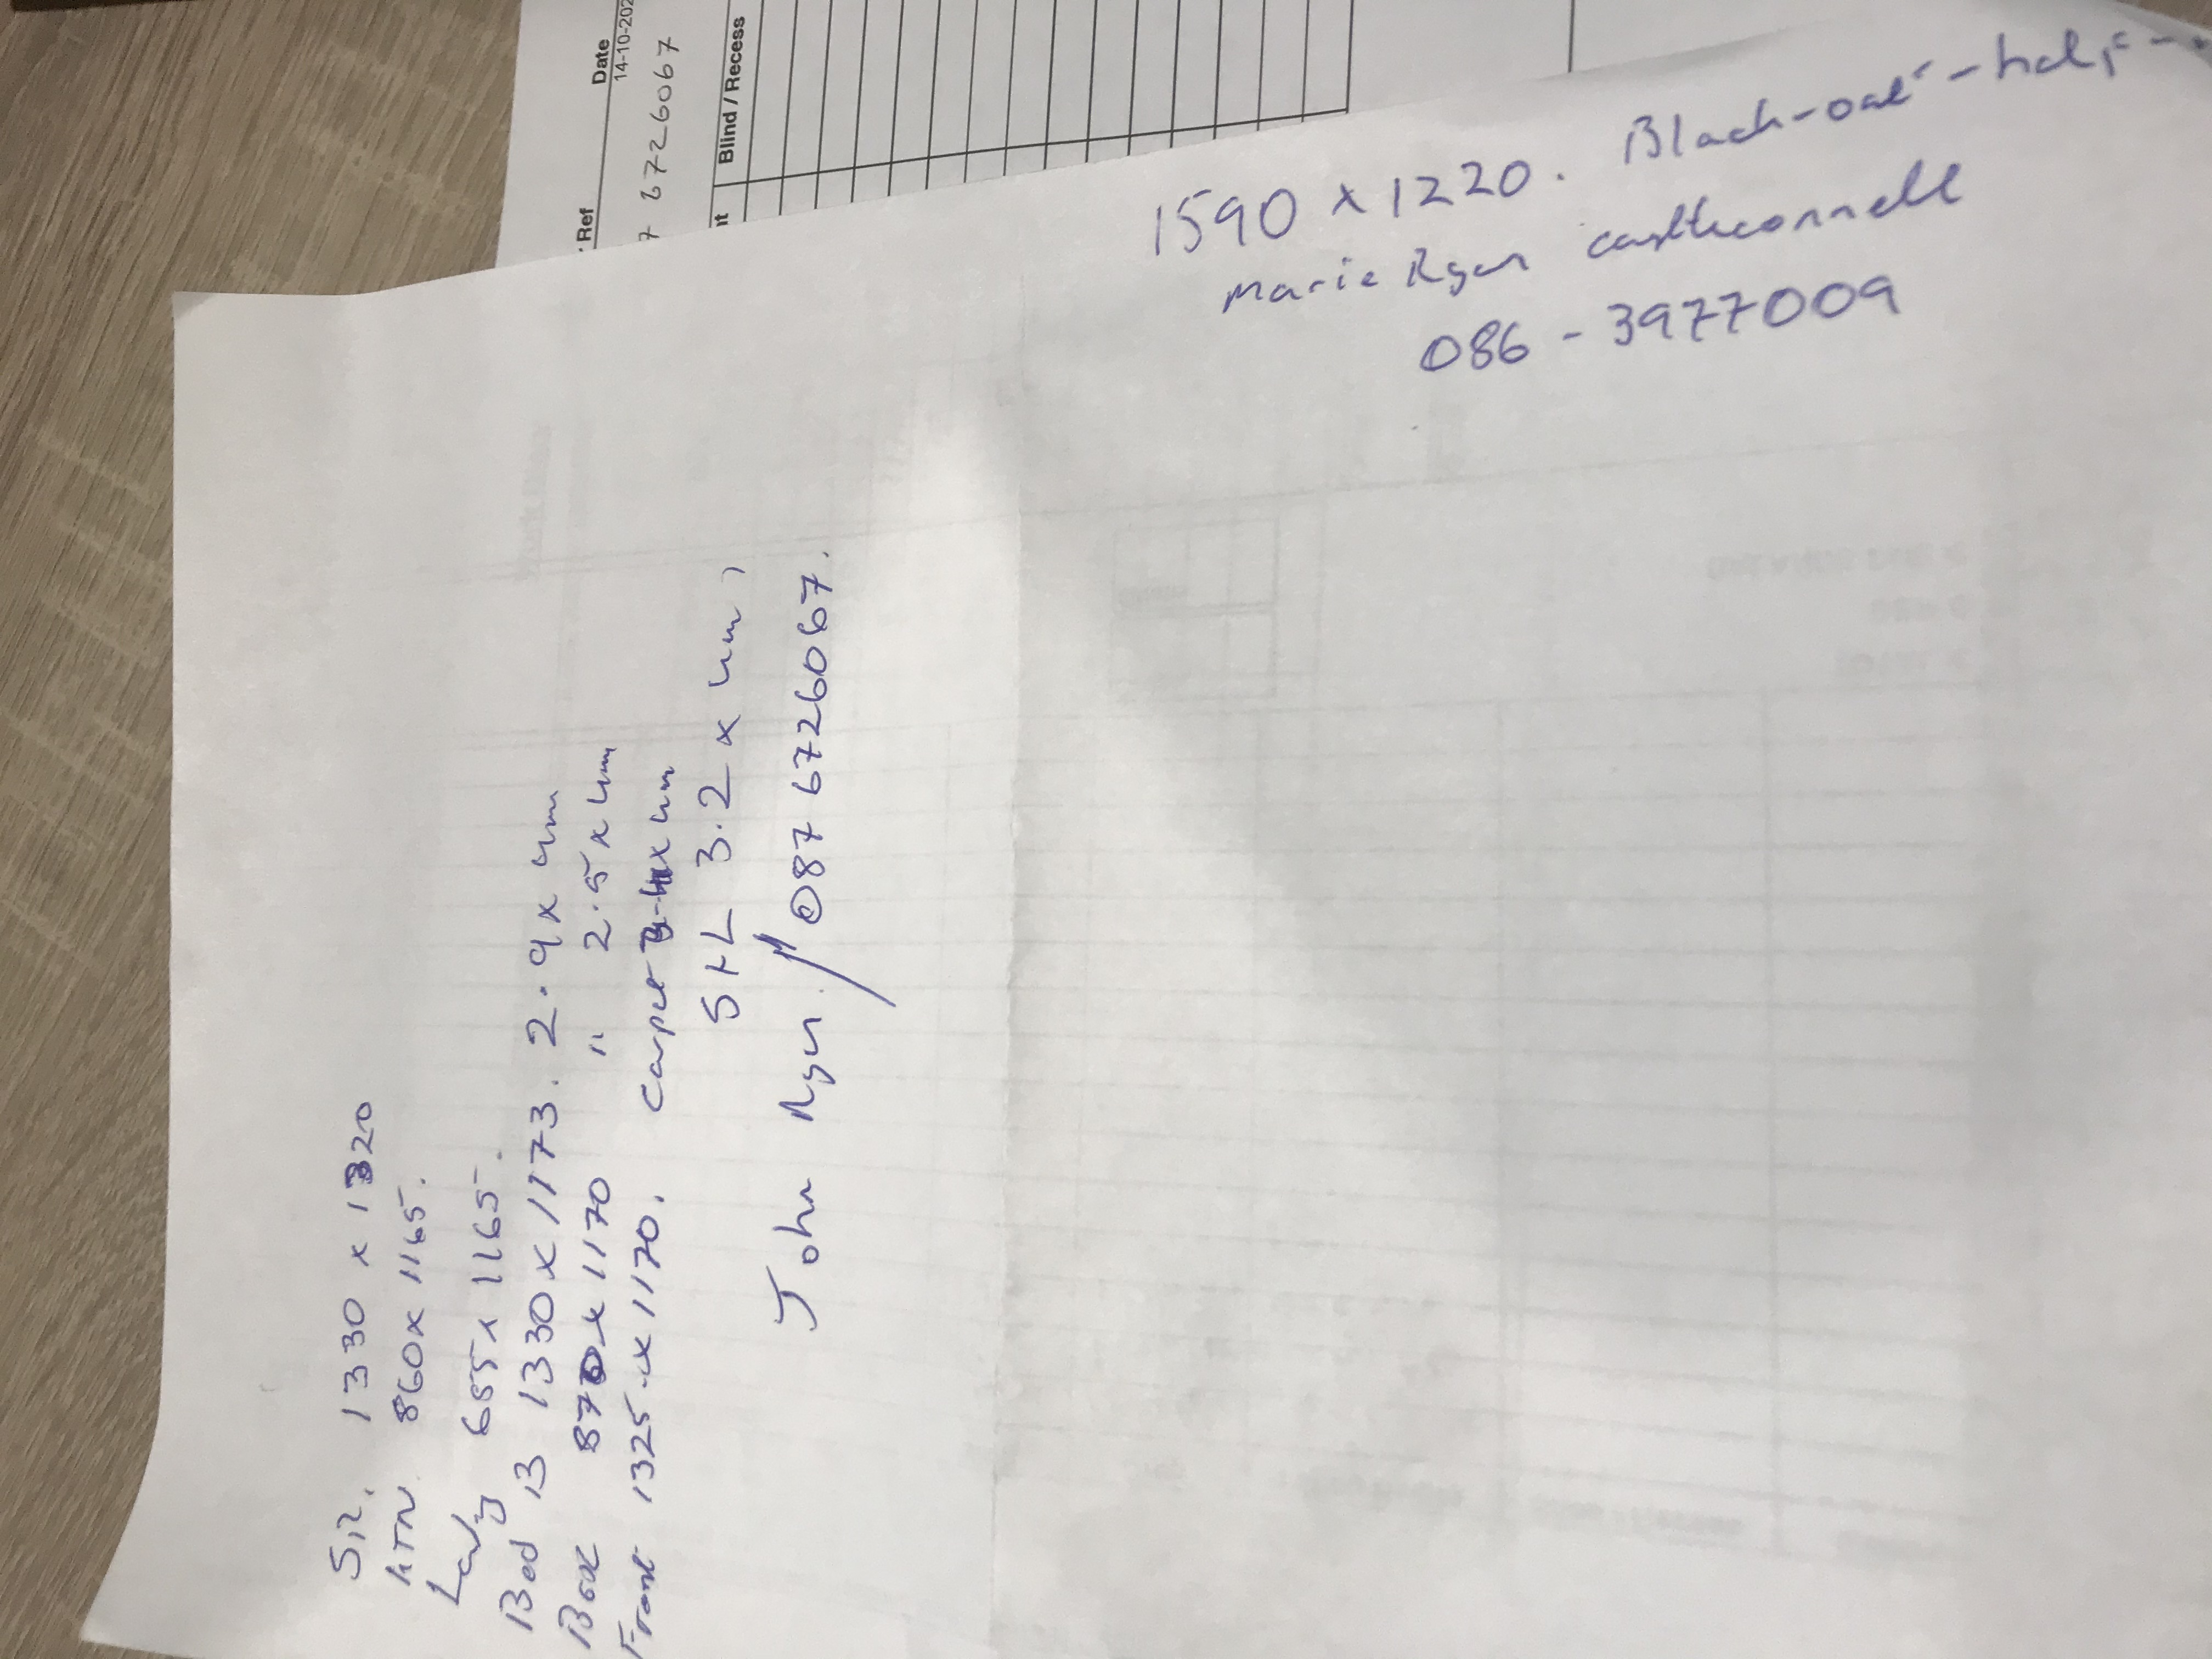 Ref Date
14-10-202
7 6726067
nt Blind / Recess
1590 x 1220. Black-out - half
Marie Ryan castleconnell
086 - 3977009
Sit. 1330 x 1320
KTN 860 x 1165.
Lady 685 x 1165.
Bed 13 1330 x 1173. 2.9 x 4m
Box 870 x 1170 " 2.5 x 4m
Front 1325 x 1170. Carpet x 4m
S+L 3.2 x 4m
John Ryan 087 6726067.